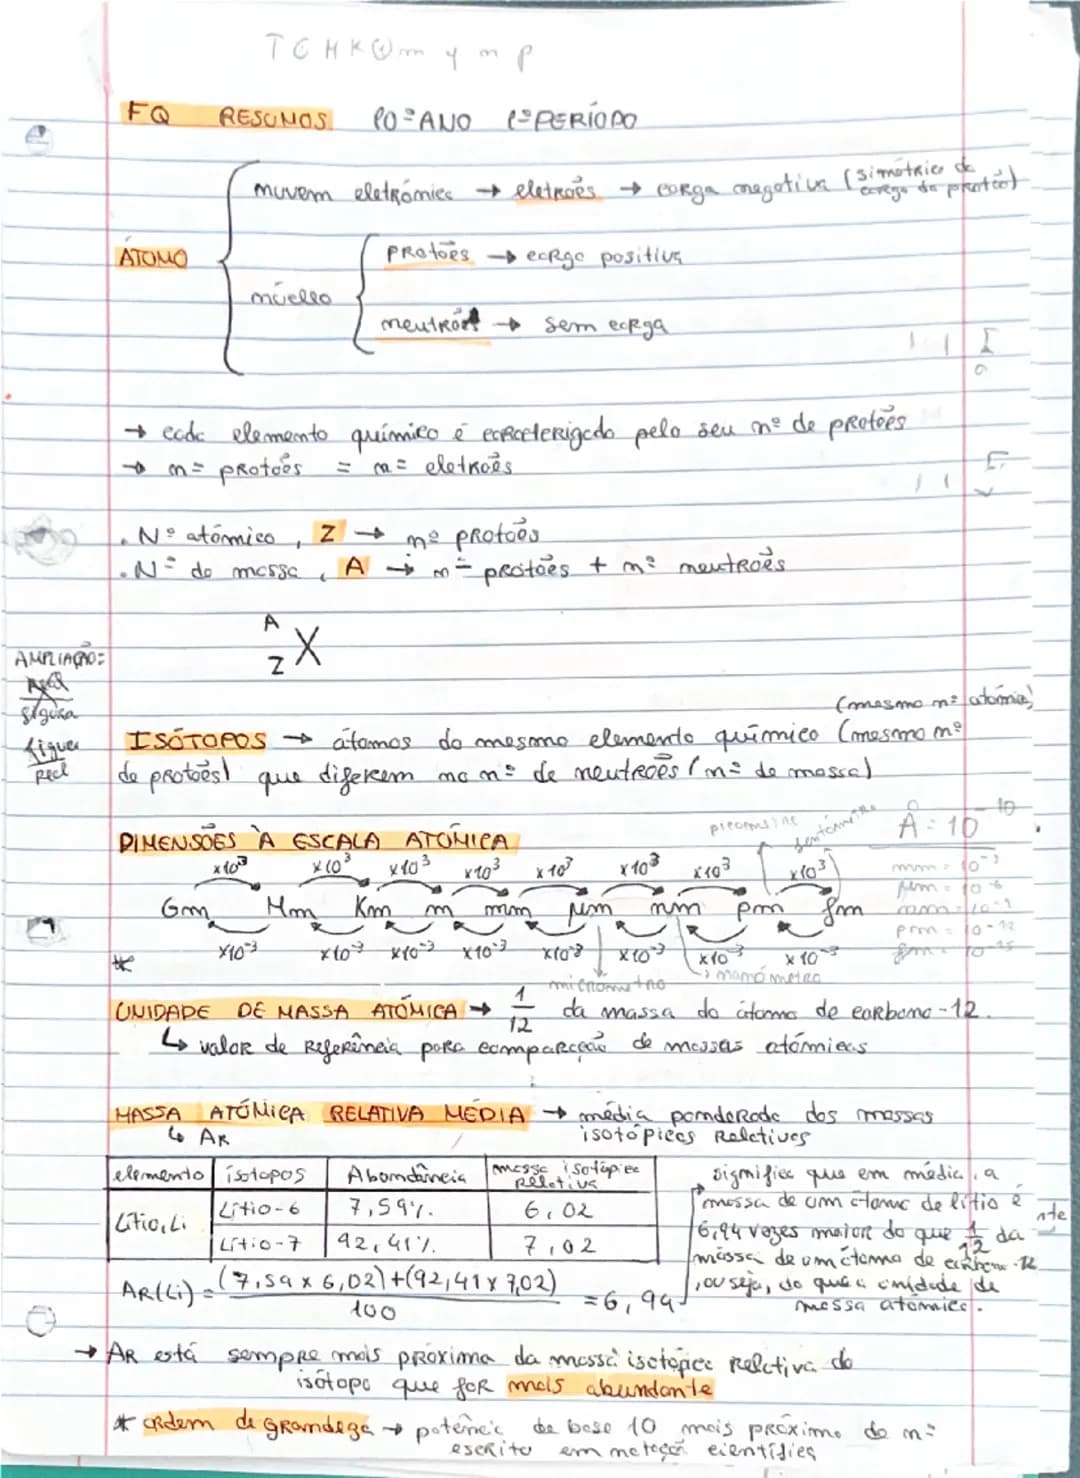 TGMK
FQ RESUMOS 10º ANO 1º PERÍODO
nuvem eletrónica → eletrões → carga negativa (simétrica da carga do protão)
ÁTOMO
protões → carga positiva
núcleo
neutrões → sem carga
→ cada elemento químico é caracterizado pelo seu nº de protões
→ nº protões = nº eletrões
. Nº atómico, Z → nº protões
. Nº de massa, A → nº protões + nº neutrões
A
Z X
AMPLIAÇÃO:
real
figura
figura
real
(mesmo nº atómico)
ISÓTOPOS → átomos do mesmo elemento químico (mesmo nº
de protões) que diferem no nº de neutrões (nº de massa)
DIMENSÕES À ESCALA ATÓMICA
picómetro
fentómetro
Å = 10^-10
x10^3 x10^3 x10^3 x10^3 x10^3 x10^3 x10^3 x10^3
mm = 10^-3
µm = 10^-6
Gm Mm Km m mm µm nm pm fm
nm = 10^-9
pm = 10^-12
fm = 10^-15
x10^-3 x10^-3 x10^-3 x10^-3 x10^-3 x10^-3 x10^-3 x10^-3
*
micrómetro
nanómetro
UNIDADE DE MASSA ATÓMICA → 1/12 da massa do átomo de carbono-12.
↳ valor de referência para comparação de massas atómicas
MASSA ATÓMICA RELATIVA MÉDIA → média ponderada das massas
isotópicas relativas
↳ AR
elemento isótopos Abundância massa isotópica relativa
Lítio, Li Lítio-6 7,59% 6,02
Lítio-7 92,41% 7,02
AR(Li) = (7,59 x 6,02)+(92,41 x 7,02) / 100 = 6,94
→ significa que em média, a
massa de um átomo de lítio é
6,94 vezes maior do que 1/12 da
massa de um átomo de carbono-12
, ou seja, do que a unidade de
massa atómica.
nte
→ AR está sempre mais próxima da massa isotópica relativa do
isótopo que for mais abundante
* ordem de grandeza → potência de base 10 mais próxima do nº
escrito em notação científica